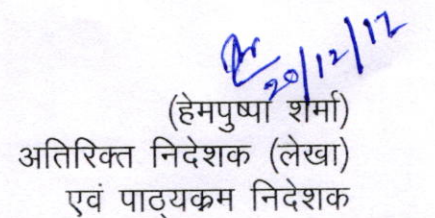 20/12/12
(हेमपुष्पा शर्मा)
अतिरिक्त निदेशक (लेखा)
एवं पाठ्यक्रम निदेशक